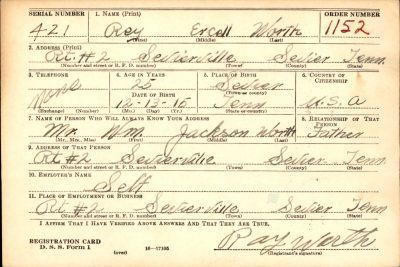 SERIAL NUMBER 1. NAME (Print) ORDER NUMBER
421 Ray Ercell Worth 1152
(First) (Middle) (Last)
2. ADDRESS (Print)
Rt. #2 Sevierville Sevier Tenn.
(Number and street or R. F. D. number) (Town) (County) (State)
3. TELEPHONE 4. AGE IN YEARS 5. PLACE OF BIRTH 6. COUNTRY OF CITIZENSHIP
None 25 Sevier
DATE OF BIRTH (Town or county)
12-13-15 Tenn U.S.A
(Exchange) (Number) (Mo.) (Day) (Yr.) (State or country)
7. NAME OF PERSON WHO WILL ALWAYS KNOW YOUR ADDRESS 8. RELATIONSHIP OF THAT PERSON
Mr. Wm. Jackson Worth Father
(Mr., Mrs., Miss) (First) (Middle) (Last)
9. ADDRESS OF THAT PERSON
Rt #2 Sevierville Sevier Tenn
(Number and street or R. F. D. number) (Town) (County) (State)
10. EMPLOYER'S NAME
Self
11. PLACE OF EMPLOYMENT OR BUSINESS
Rt #2 Sevierville Sevier Tenn
(Number and street or R. F. D. number) (Town) (County) (State)
I AFFIRM THAT I HAVE VERIFIED ABOVE ANSWERS AND THAT THEY ARE TRUE.
REGISTRATION CARD Ray Worth
D. S. S. Form 1 (over) 16—17105 (Registrant's signature)